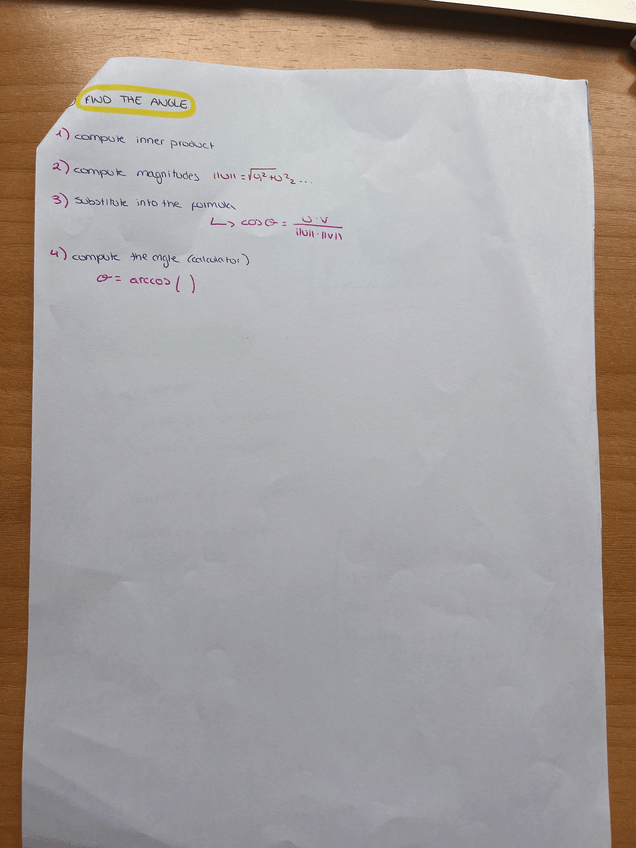 FIND THE ANGLE
1) compute inner product
2) compute magnitudes ||u|| = √u₁² + u²₂ ...
3) substitute into the formula
↳ cos θ = u · v / ||u|| · ||v||
4) compute the angle (calculator)
θ = arccos ( )